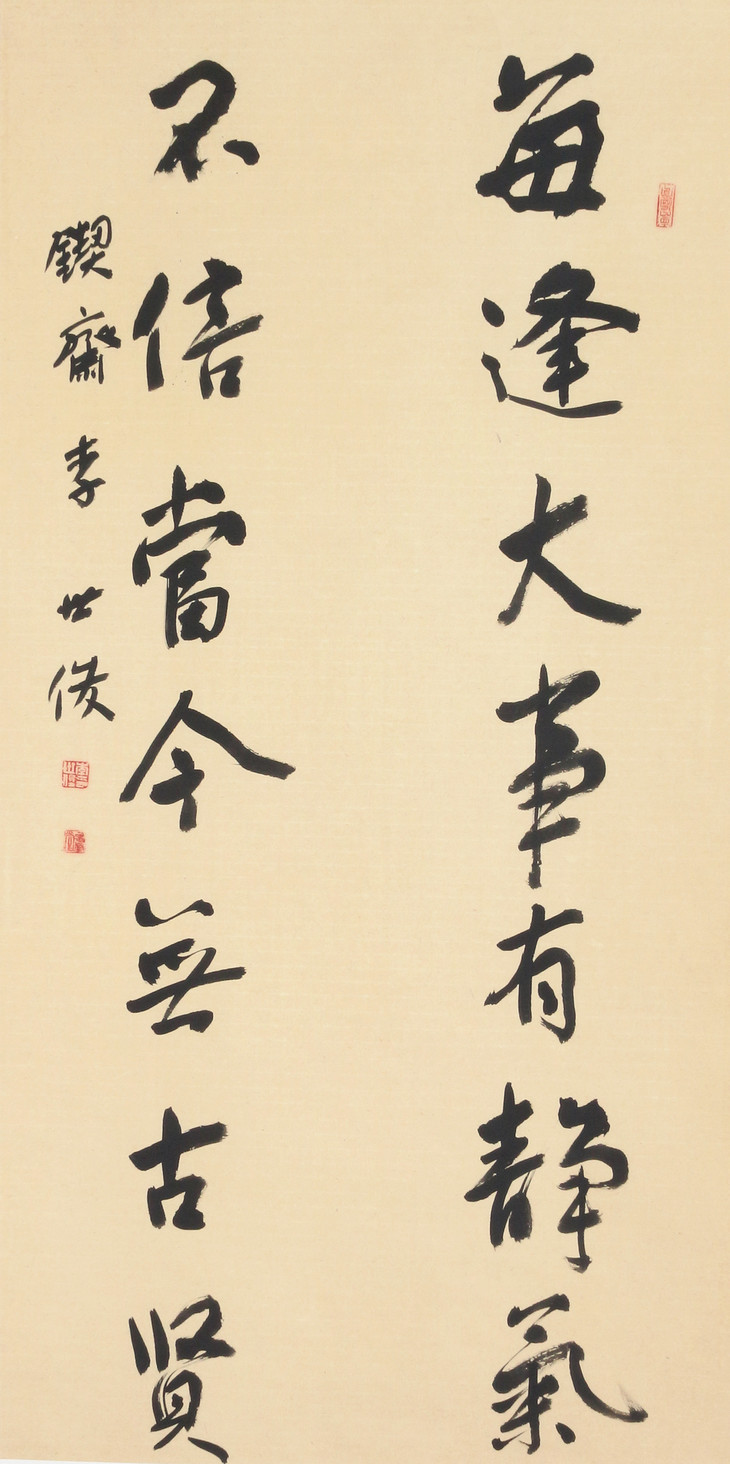 每逢大事有静氣
不信當今無古賢
鍥齋 李世俊